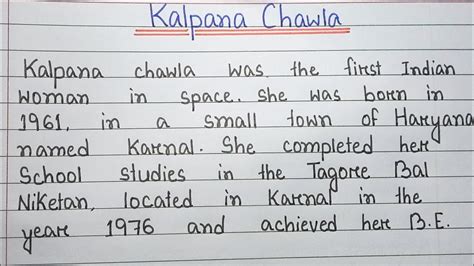 Kalpana Chawla
Kalpana chawla was the first Indian
woman in space. She was born in
1961, in a small town of Haryana
named Karnal. She completed her
School studies in the Tagore Bal
Niketan, located in Karnal in the
year 1976 and achieved her B.E.